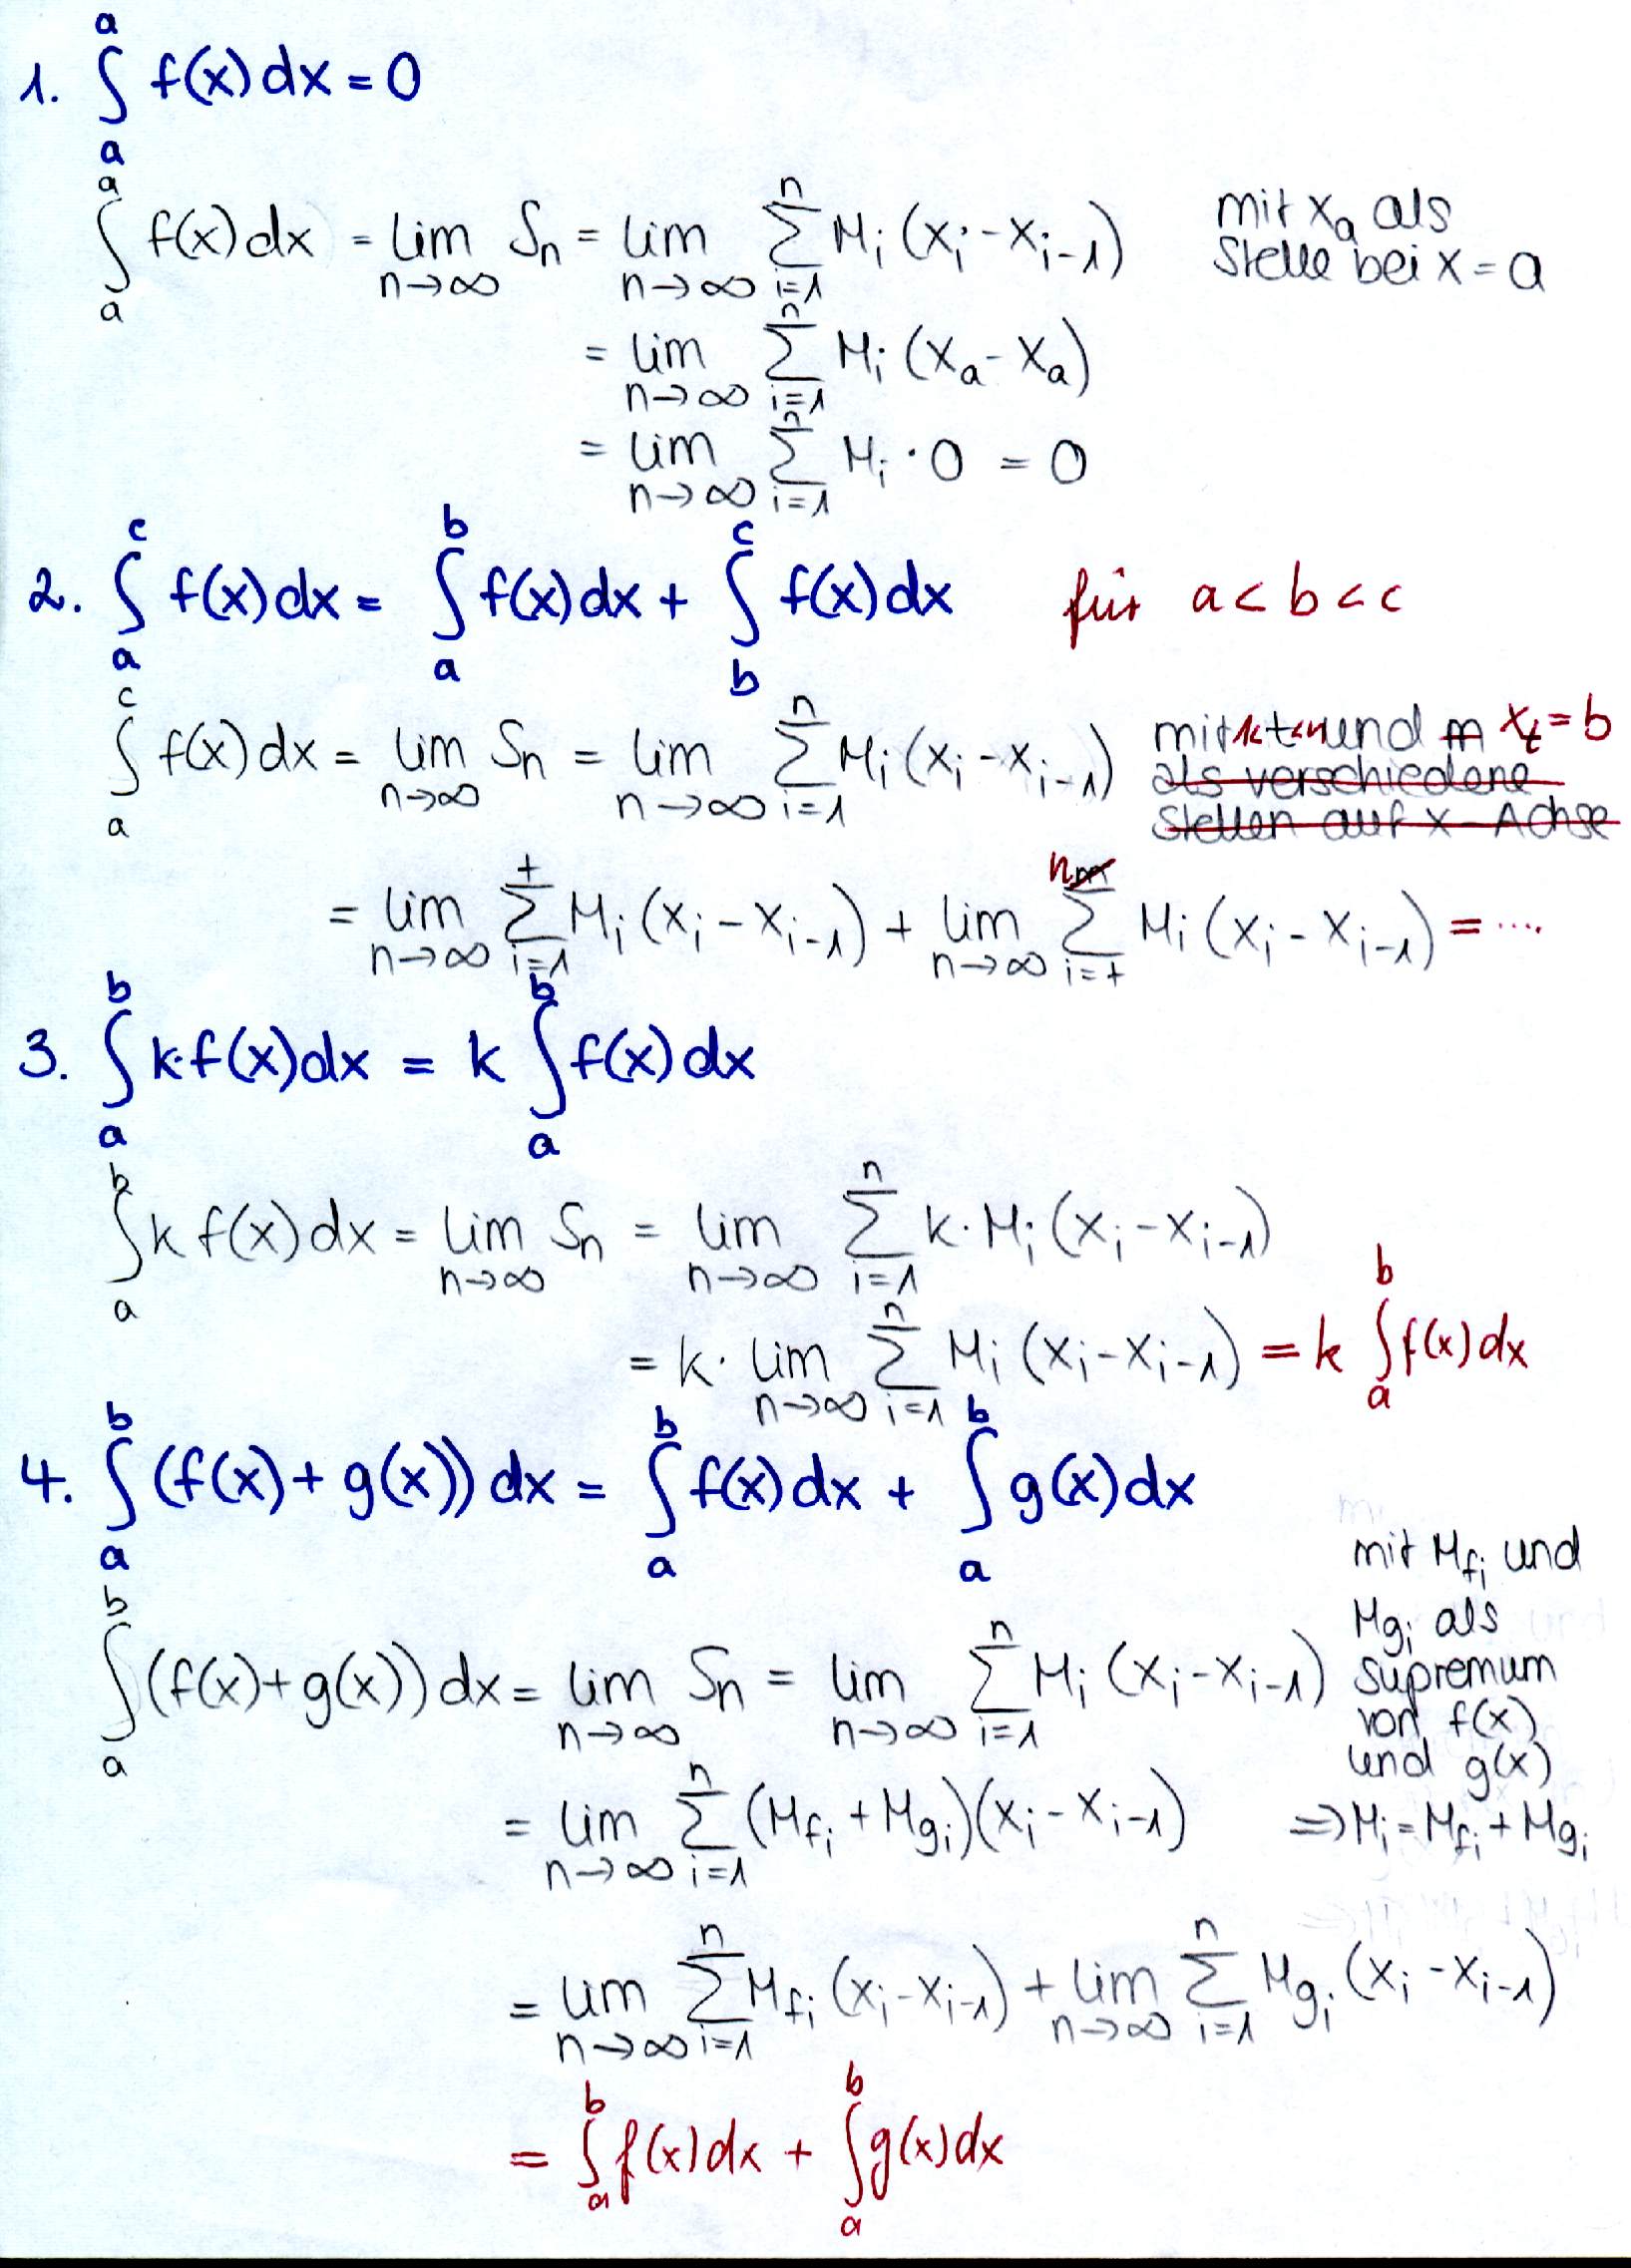 1. ∫_a^a f(x) dx = 0
∫_a^a f(x) dx = lim_{n→∞} S_n = lim_{n→∞} Σ_{i=1}^n M_i (x_i - x_{i-1}) mit x_a als
Stelle bei x = a
= lim_{n→∞} Σ_{i=1}^n M_i (x_a - x_a)
= lim_{n→∞} Σ_{i=1}^n M_i · 0 = 0
2. ∫_a^c f(x) dx = ∫_a^b f(x) dx + ∫_b^c f(x) dx für a < b < c
∫_a^c f(x) dx = lim_{n→∞} S_n = lim_{n→∞} Σ_{i=1}^n M_i (x_i - x_{i-1}) mit 1<t<n und m x_t = b
als verschiedene
Stellen auf x-Achse
= lim_{n→∞} Σ_{i=1}^t M_i (x_i - x_{i-1}) + lim_{n→∞} Σ_{i=t}^{n m} M_i (x_i - x_{i-1}) = ....
3. ∫_a^b k·f(x) dx = k ∫_a^b f(x) dx
∫_a^b k f(x) dx = lim_{n→∞} S_n = lim_{n→∞} Σ_{i=1}^n k · M_i (x_i - x_{i-1})
= k · lim_{n→∞} Σ_{i=1}^n M_i (x_i - x_{i-1}) = k ∫_a^b f(x) dx
4. ∫_a^b (f(x) + g(x)) dx = ∫_a^b f(x) dx + ∫_a^b g(x) dx
mit M_{f_i} und
M_{g_i} als
∫_a^b (f(x) + g(x)) dx = lim_{n→∞} S_n = lim_{n→∞} Σ_{i=1}^n M_i (x_i - x_{i-1}) supremum
von f(x)
und g(x)
= lim_{n→∞} Σ_{i=1}^n (M_{f_i} + M_{g_i})(x_i - x_{i-1}) ⇒ M_i = M_{f_i} + M_{g_i}
= lim_{n→∞} Σ_{i=1}^n M_{f_i} (x_i - x_{i-1}) + lim_{n→∞} Σ_{i=1}^n M_{g_i} (x_i - x_{i-1})
= ∫_a^b f(x) dx + ∫_a^b g(x) dx